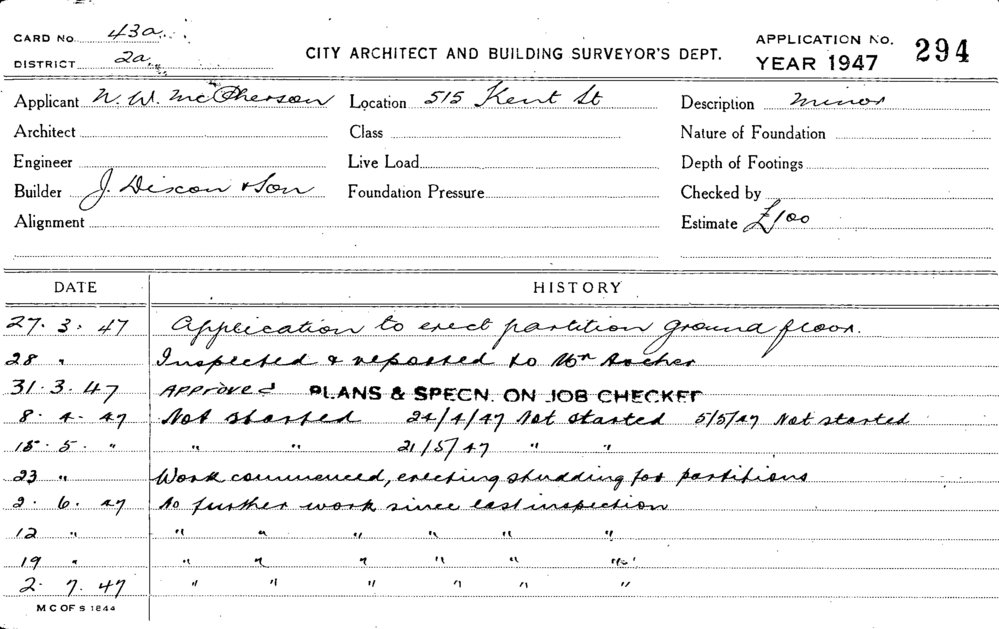 CARD No. 43a
DISTRICT 2a
CITY ARCHITECT AND BUILDING SURVEYOR'S DEPT.
APPLICATION No. 294
YEAR 1947
Applicant N. W. McPherson Location 515 Kent St Description minor
Architect Class Nature of Foundation
Engineer Live Load Depth of Footings
Builder J. Dixon & Son Foundation Pressure Checked by
Alignment Estimate £100
DATE HISTORY
27. 3. 47 Application to erect partition ground floor.
28 " Inspected & reported to Mr Archer
31. 3. 47 APPROVED PLANS & SPECN. ON JOB CHECKED
8. 4. 47 Not started 24/4/47 Not started 5/5/47 Not started
15. 5. " " " 21/5/47 " "
23 " Work commenced, erecting studding for partitions
2. 6. 47 No further work since last inspection
12 " " " " " " "
19 " " " " " " "
2. 7. 47 " " " " " "
M C OF S 1844